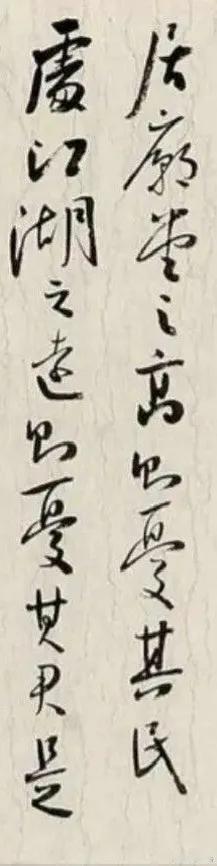 居廟堂之高則憂其民
處江湖之遠則憂其君是